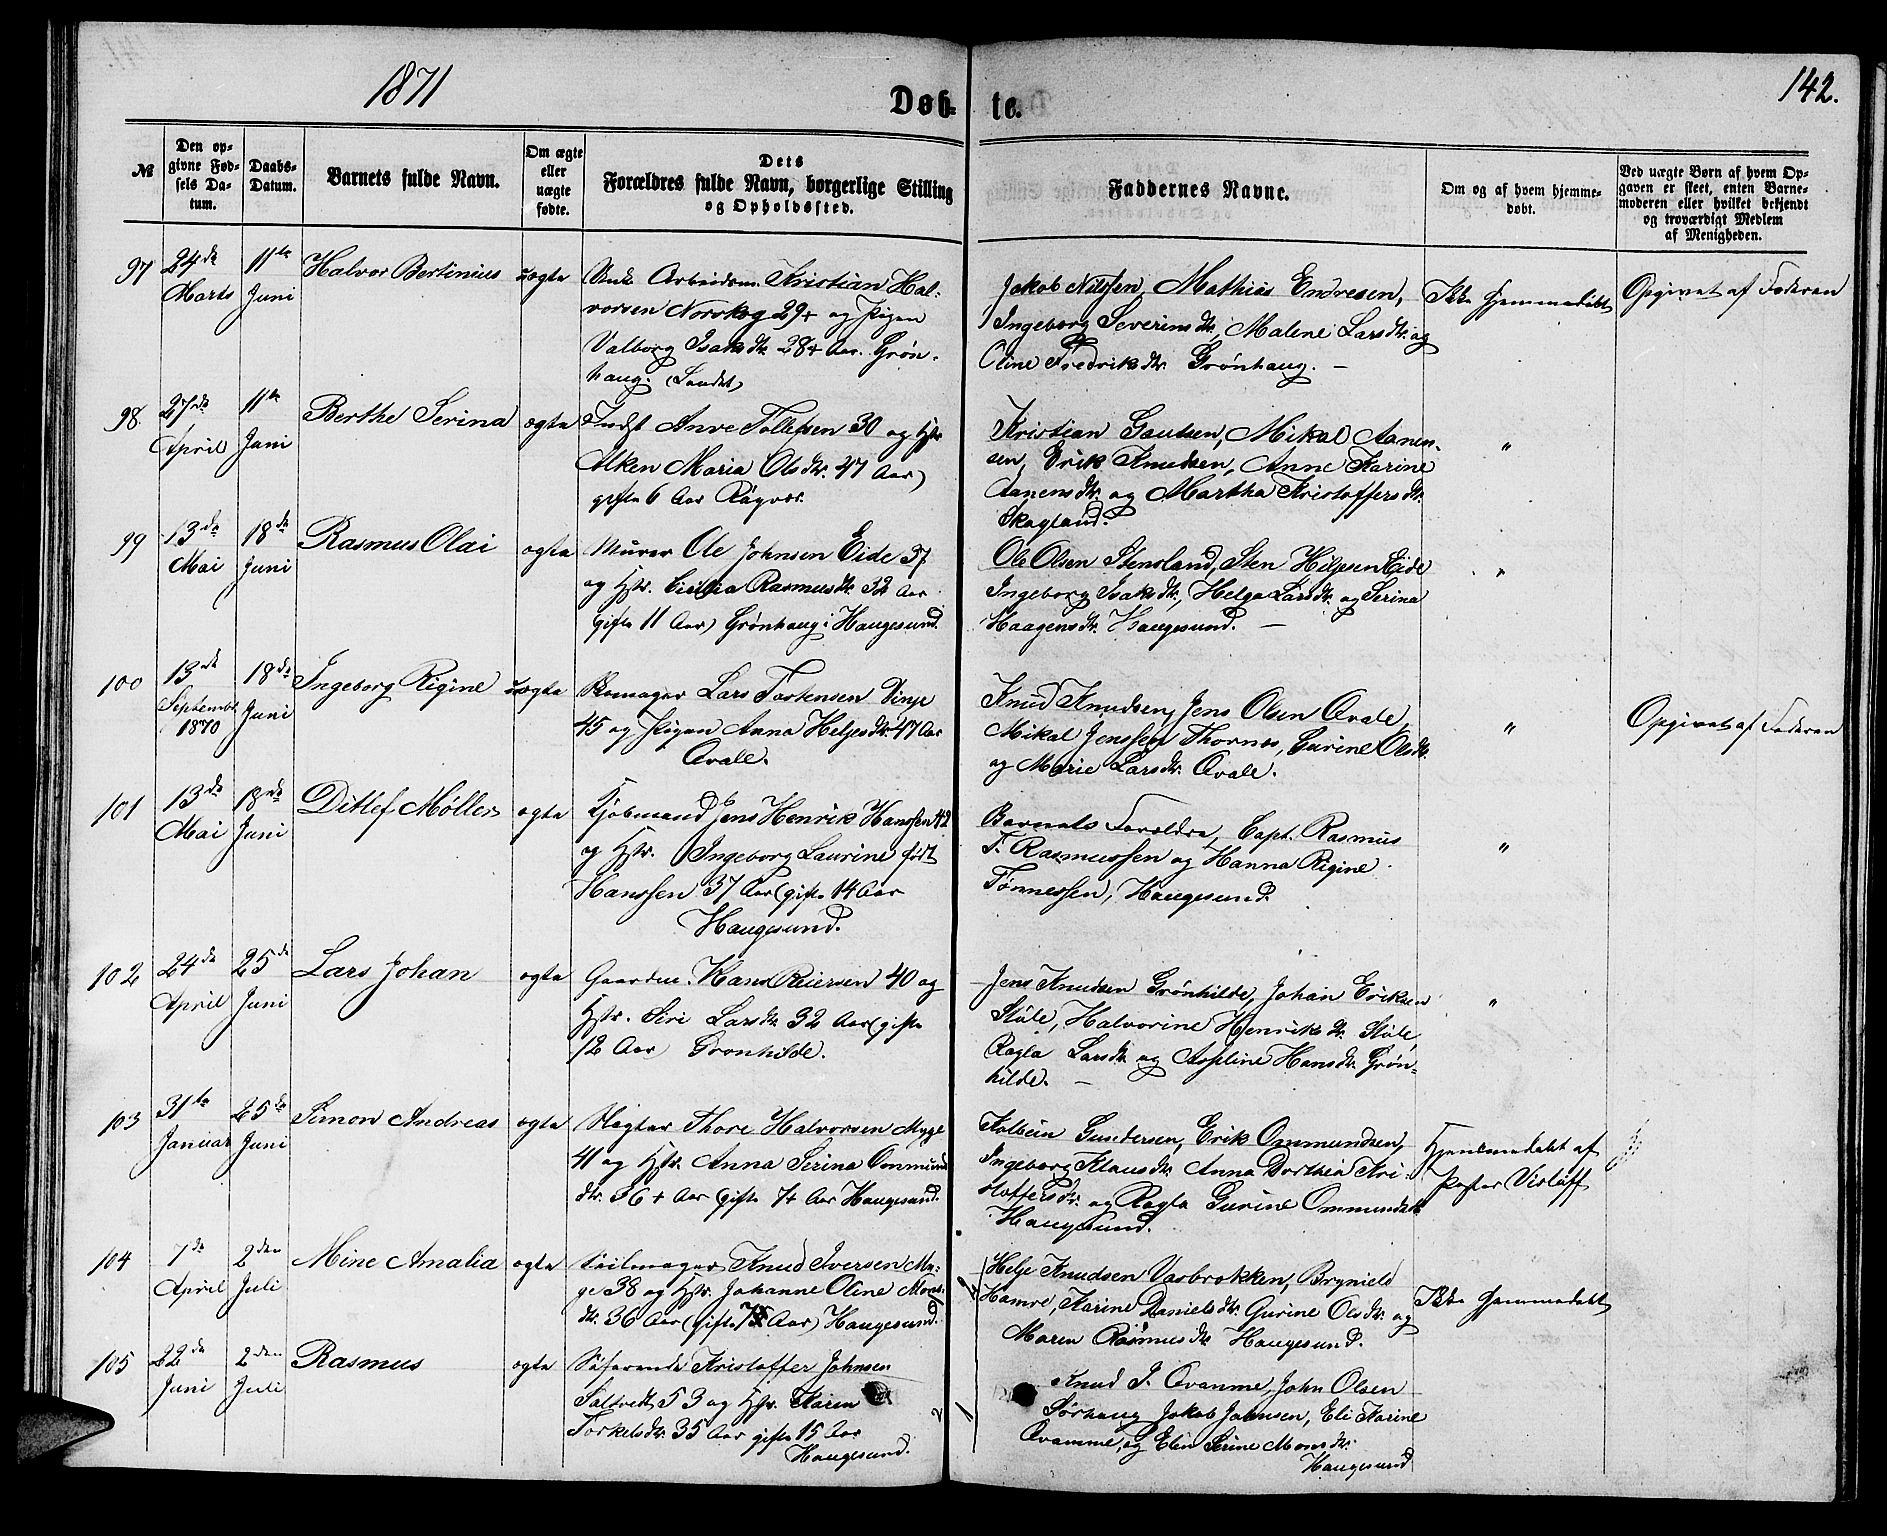 1871
Døb- te.
142.
№
Den op-
givne Fød-
sels Da-
tum.
Daabs-
Datum.
Barnets fulde Navn.
Om ægte
eller
uægte
fødte.
Dets
Forældres fulde Navn, borgerlige Stilling
og Opholdssted.
Faddernes Navne.
Om og af hvem hjemme-
døbt.
Ved uægte Børn af hvem Op-
gaven er skeet, enten Barne-
moderen eller hvilket bekjendt
og troværdigt Medlem
af Menigheden.
97
24de
Marts
11te
Juni
Halvor Bertinius
uægte
Arbeidsm. Kristian Hal-
vorsen Norskog 29+ og Pigen
Valborg Isaksdtr. 28+ Aar. Grøn-
haug. (Landet)
Jakob Nilssen, Mathias Endresen,
Ingeborg Severinsdtr., Malene Larsdtr. og
Oline Fredriksdtr. Grønhaug. —
Ikke hjemmedøbt
Opgivet af Faderen
98.
27de
April
11te
Juni
Berthe Serina
ægte
Indst Anve Tollefsen 30 og Hstr
Alken Maria Olsdtr. 47 Aar)
gifte 6 Aar Røgvær.
Kristian Gautsen, Mikal Aanen-
sen, Erik Knudsen, Anne Karine
Aanensdtr. og Martha Kristoffersdtr.
Skagland.
"
99
13de
Mai
18de
Juni
Rasmus Olai
ægte
Murer Ole Johnsen Eide 37
og Hstr. Cecilia Rasmusdtr. 32 Aar
gifte 11 Aar) Grønhaug i Haugesund.
Ole Olsen Stensland, Sten Helgesen Eide
Ingeborg Isaksdtr., Helga Larsdtr. og Serina
Haagensdtr. Haugesund. —
"
100
13de
Septembr
1870
18de
Juni
Ingeborg Rigine
uægte
Lars Torstensen Vinje
45 og Pigen Anna Heljesdtr. 47 Aar
Qvale.
Knud Knudsen, Jens Olsen Qvale,
Mikal Jenssen Thornes, Gurine Olsdtr.
og Marie Larsdtr. Qvale.
"
Opgivet af Faderen
101
13de
Mai
18de
Juni
Ditlef Møller
ægte
Kjøbmand Jens Henrik Hanssen 42
og Hstr. Ingeborg Laurine født
Hanssen 37 Aar (gifte 14 Aar
Haugesund.
Barnets Forældre, Capt. Rasmus
F. Rasmussen og Hanna Rigine
Tønnessen, Haugesund.
"
102
24de
April
25de
Juni
Lars Johan
ægte
Gaardm. Hans Reiersen 40 og
Hstr. Siri Larsdtr. 32 Aar (gifte
12 Aar) Grønhilde.
Jens Knudsen Grønhilde, Johan Eriksen
Støle, Halvorine Henriksdtr. Støle,
Ragla Larsdtr. og Asseline Hansdtr. Grøn-
hilde. —
"
103
31te
Januar
25de
Juni
Simon Andreas
ægte
Slagter Thore Halvorsen Myge
41 og Hstr. Anna Serina Ommunds
dtr. 36+ Aar (gifte 7+ Aar Haugesund.
Kolbein Gundersen, Erik Ommundsen,
Ingeborg Klausdtr. Anna Dorthea Kri-
stoffersdtr. og Ragla Gurine Ommundsdtr.
Haugesund.
Hjemmedøbt af
Pastor Visløff
104
7de
April
2den
Juli
Mine Amalia
ægte
Seilmager Knud Iversen My-
ge 38 og Hstr. Johanne Oline Mons-
dtr. 36 Aar (gifte Aar) Haugesund.
Helje Knudsen Vasbrekken, Brynield
Hamre, Karine Danielsdtr. Gurine Olsdtr. og
Maren Rasmusdtr. Haugesund.
Ikke hjemmedøbt
105
22de
Juni
2den
Juli
Rasmus
ægte
Søfarende Kristoffer Johnsen
Saltvedt 53 og Hstr. Karen
Torkelsdtr. 35 Aar gifte 15 Aar
Haugesund.
Knud J. Qvamme, John Olsen
Sørhaug Jakob Johnsen, Eli Karine
Qvamme, og Elen Serine Monsdtr.
Haugesund